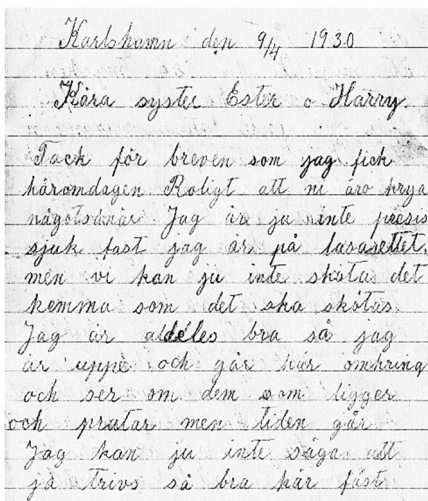 Karlshamn den 9/4 1930
Kära syster Ester o Harry.
Tack för breven som jag fick
häromdagen Roligt att ni äro krya
någotsånär Jag är ju inte precis
sjuk fast jag är på lasarettet.
men vi kan ju inte sköta det
hemma som det ska skötas
Jag är aldeles bra så jag
är uppe och går här omkring
och ser om dem som ligger
och pratar men tiden går
Jag kan ju inte säga att
ja trivs så bra här fast